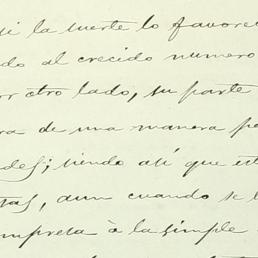 si la suerte lo favore
do al crecido numero
or otro lado, su parte
ra de una manera pe
des; siendo así que est
tas, aun cuando se l
mpresa à la simple